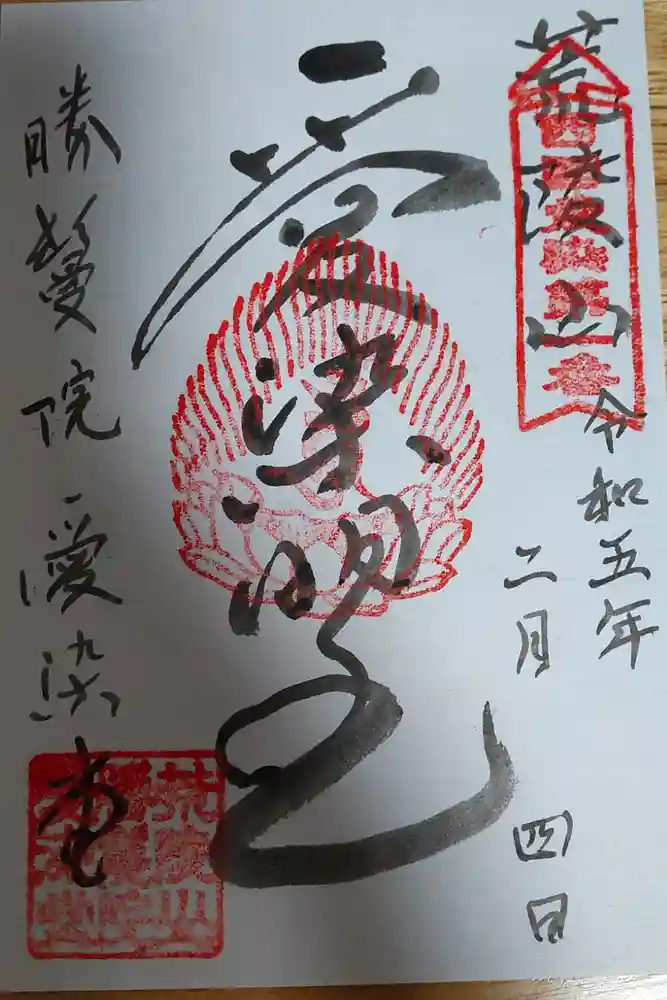 荒陵山
令和五年
二月
四日
愛染明王
勝鬘院 愛染堂